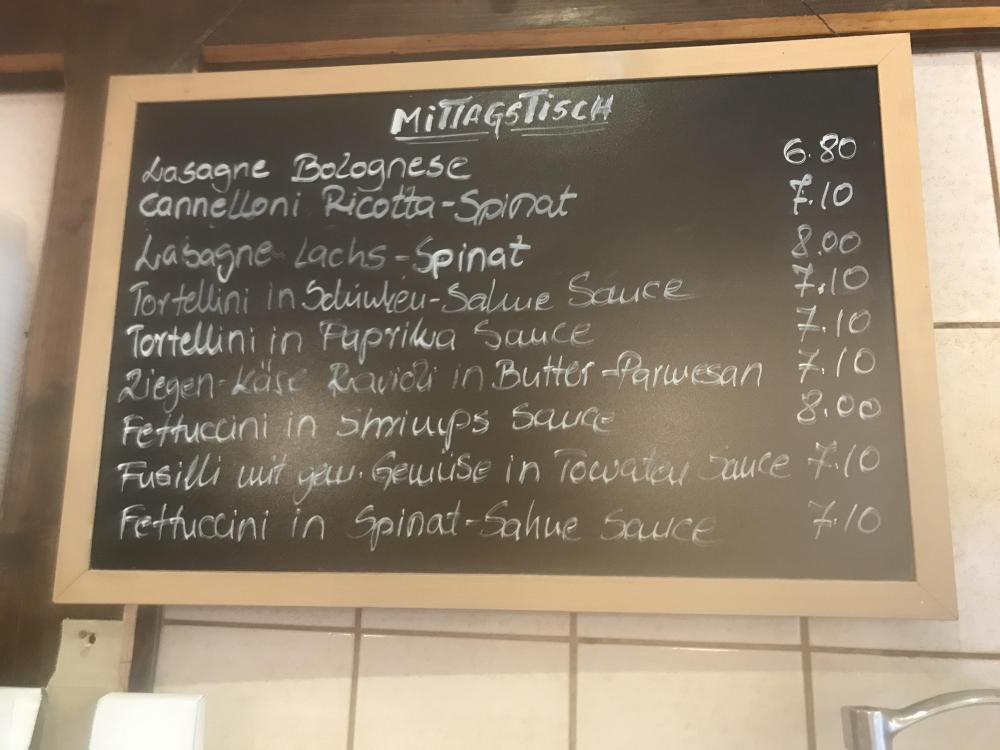 MITTAGSTISCH
Lasagne Bolognese 6.80
Cannelloni Ricotta-Spinat 7.10
Lasagne Lachs-Spinat 8.00
Tortellini in Schinken-Sahne Sauce 7.10
Tortellini in Paprika Sauce 7.10
Ziegen-Käse Ravioli in Butter-Parmesan 7.10
Fettuccini in Shrimps Sauce 8.00
Fusilli mit gem. Gemüse in Tomaten Sauce 7.10
Fettuccini in Spinat-Sahne Sauce 7.10